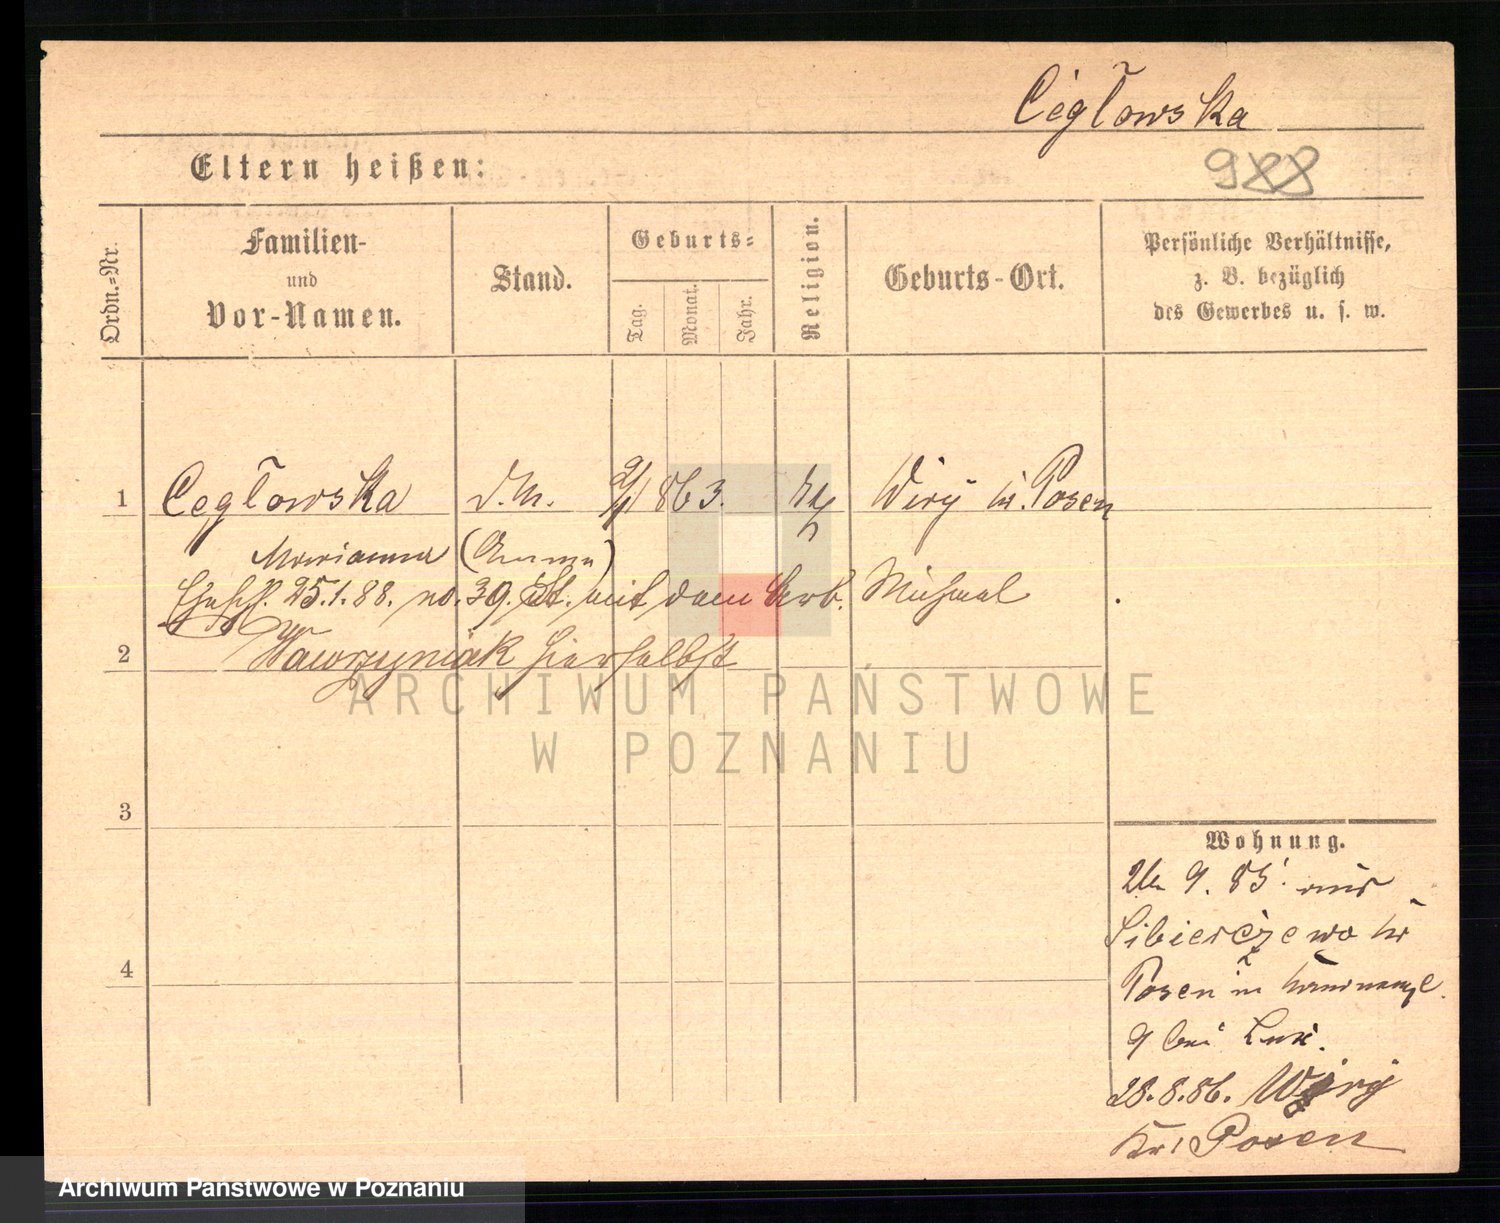 Cegłowska
Eltern heißen:
988
Ordn.-Nr.
Familien-
und
Vor-Namen.
Stand.
Geburts-
Tag.
Monat.
Jahr.
Religion.
Geburts-Ort.
Persönliche Verhältnisse,
z. B. bezüglich
des Gewerbes u. s. w.
1 Cegłowska d. M. 9/1 863. kth Wiry kr. Posen
Marianna (Anna)
25.1.88. no. 39. St. mit dem Arb. Michael
2 Wawrzyniak hierselbst
3
4
Wohnung.
9. 85. aus
Sibierczewo kr
Posen in
9 bei
28.8.86. Wiry
Kr. Posen
ARCHIWUM PAŃSTWOWE
W POZNANIU
Archiwum Państwowe w Poznaniu